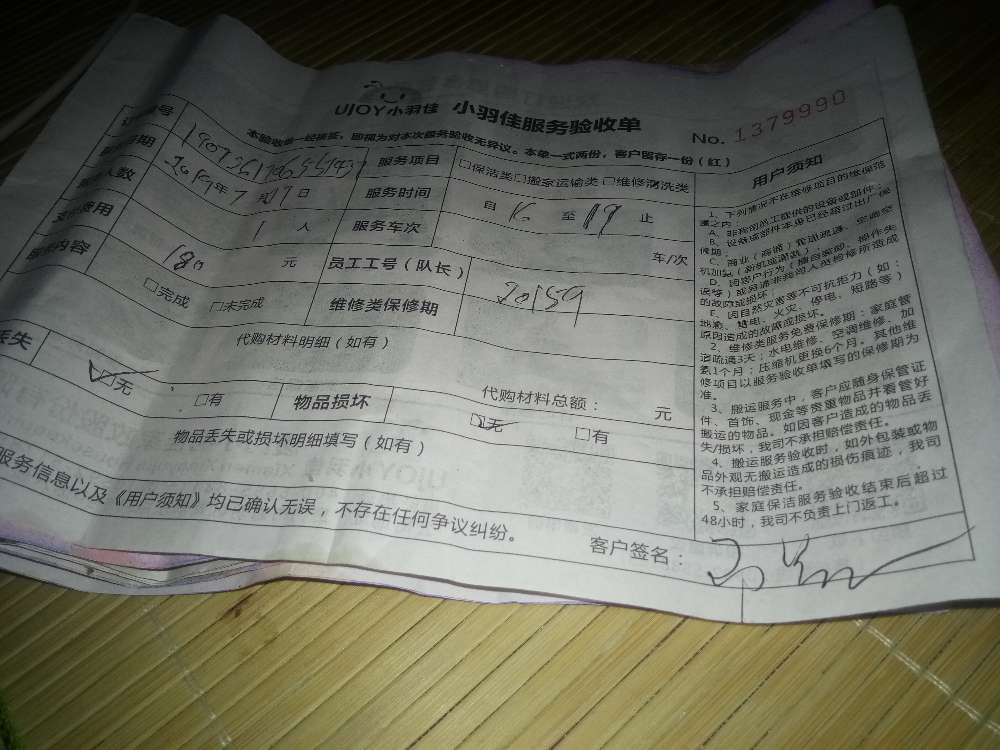 UJOY小羽佳 小羽佳服务验收单
No. 1379990
本验收单一经签签，即视为对本次服务验收无异议。本单一式两份，客户留存一份（红）
号
服务项目 □保洁类□搬家运输类□维修清洗类
期 2019年7月17日
服务时间 自16至19止
人数 1人
服务车次 车/次
费用 80元
员工工号（队长） 20159
内容 □完成 □未完成
维修类保修期
代购材料明细（如有）
代购材料总额： 元
丢失 □无 □有
物品损坏 □无 □有
物品丢失或损坏明细填写（如有）
服务信息以及《用户须知》均已确认无误，不存在任何争议纠纷。
客户签名：
用户须知
1、下列情况不在维修项目的维保范
围之内：
A、非我司员工提供的设备或部件；
B、设备或部件本身已经超过出厂保
修期；
E、因自然灾害等不可抗拒力（如：
地震、雷电、火灾、停电、短路等）
原因造成的故障或损坏。
2、维修类服务免费保修期：家庭管
道疏通3天；水电维修、空调维修、加
氟1个月；压缩机更换6个月。其他维
修项目以服务验收单填写的保修期为
准。
3、搬运服务中，客户应随身保管证
件、首饰、现金等贵重物品并看管好
搬运的物品。如因客户造成的物品丢
失/损坏，我司不承担赔偿责任。
4、搬运服务验收时，如外包装或物
品外观无搬运造成的损伤痕迹，我司
不承担赔偿责任。
5、家庭保洁服务验收结束后超过
48小时，我司不负责上门返工。